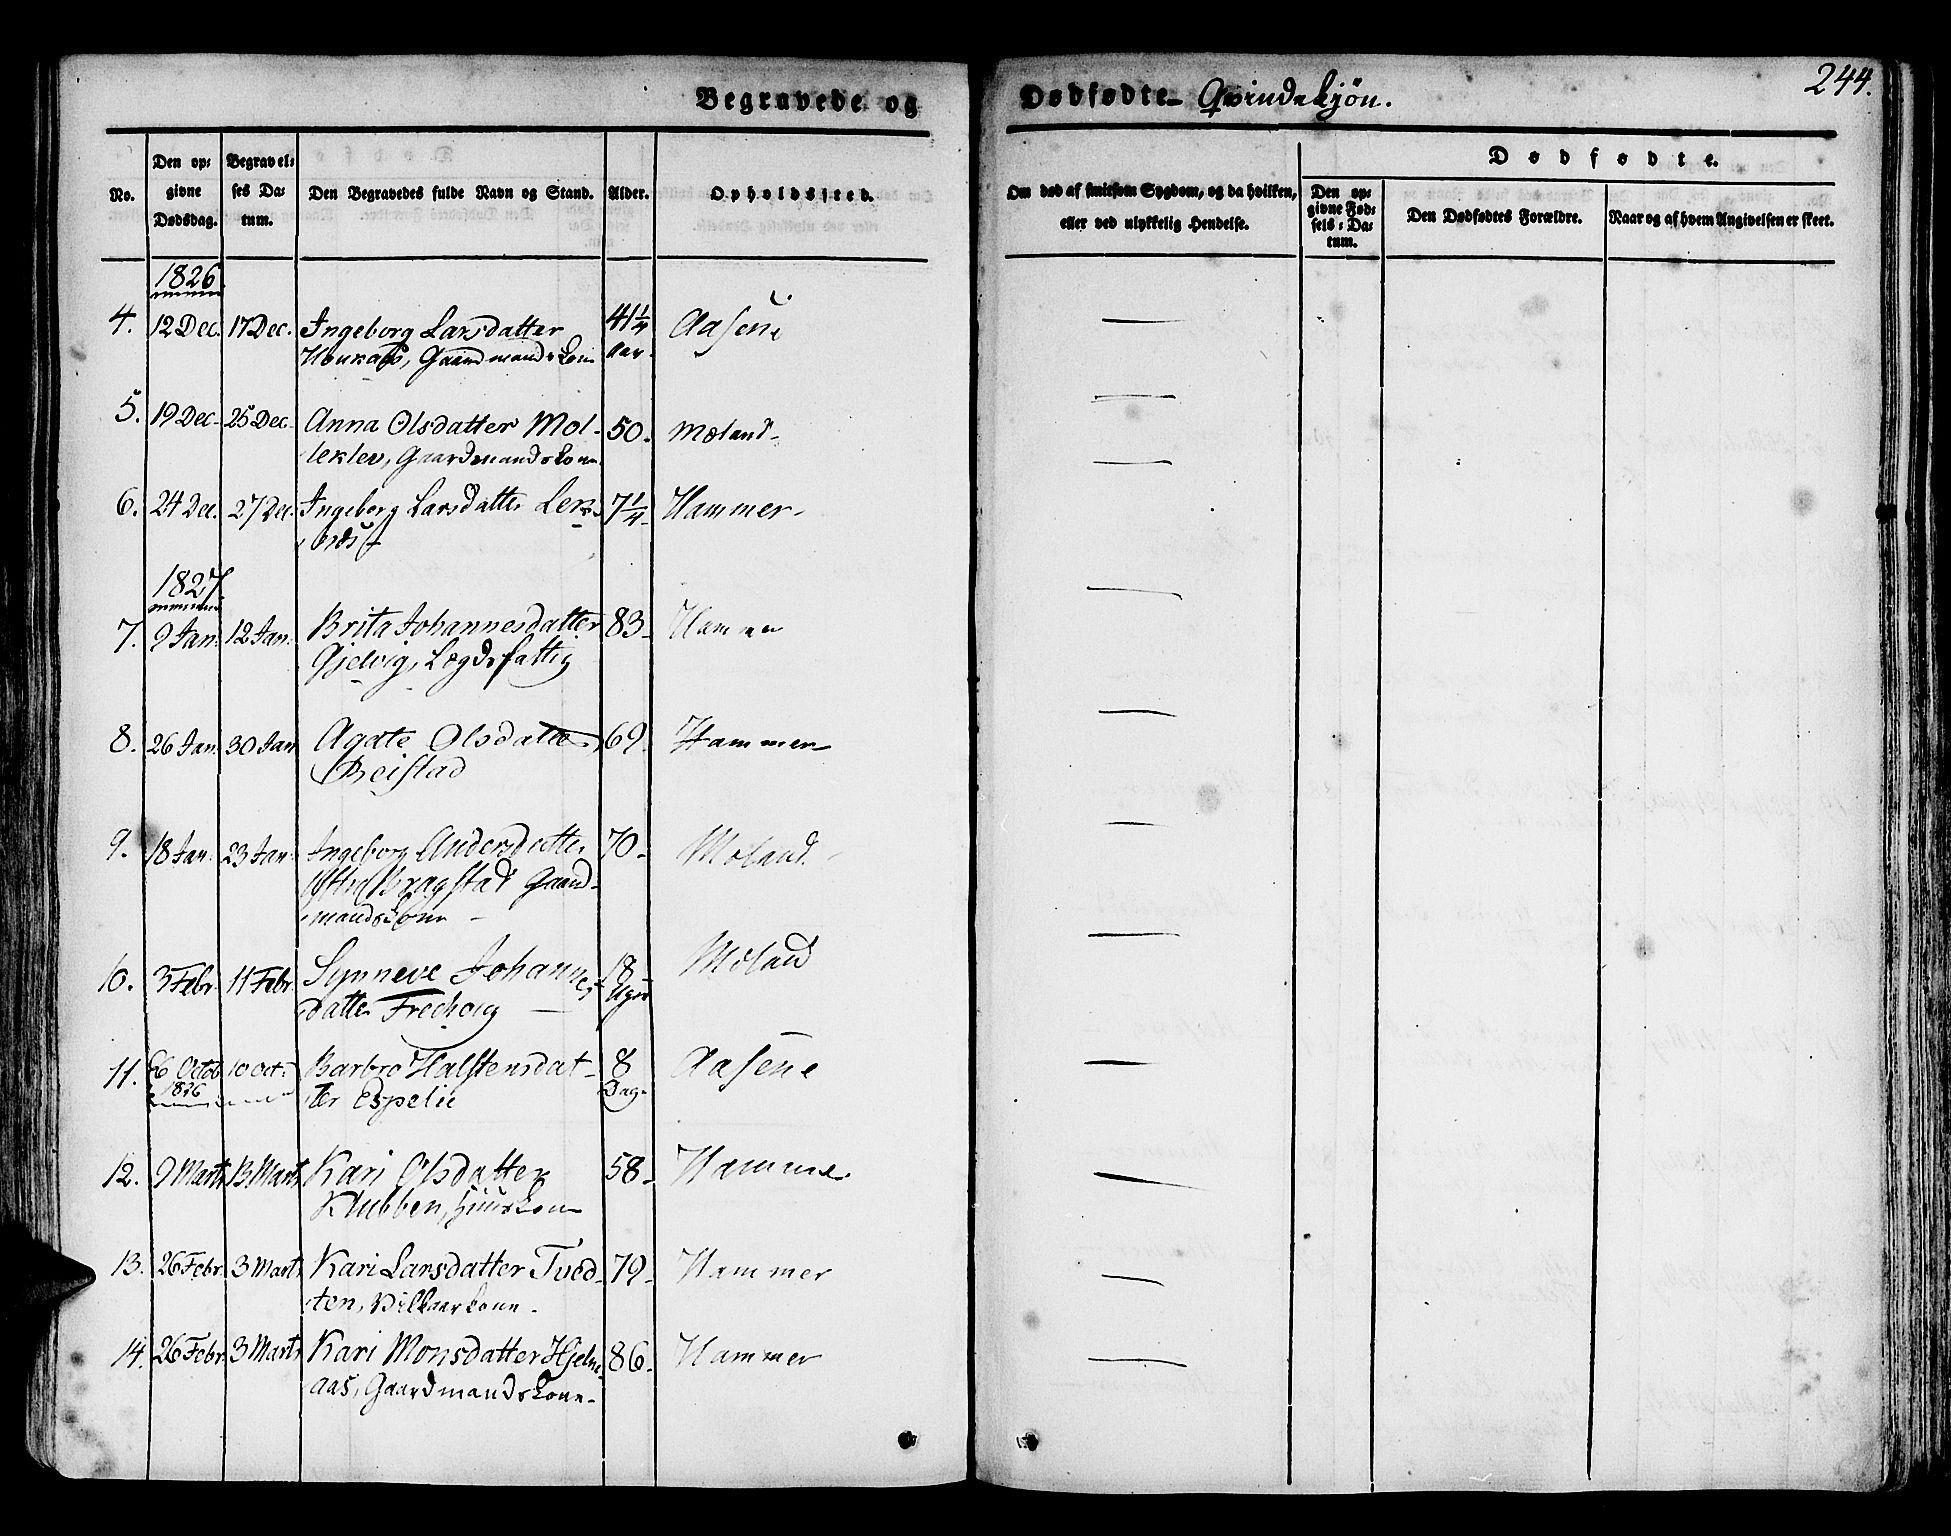 Begravede og Dødfødte Qvindekjøn. 244.
No. Den op⸗ givne Dødsdag. Begravel⸗ ses Da⸗ tum. Den Begravedes fulde Navn og Stand. Alder. Opholdssted.
Om død af smitsom Sygdom, og da hvilken, eller ved ulykkelig Hendelse.
Dødfødte.
Den op⸗ givne Fød⸗ sels⸗Da⸗ tum. Den Dødfødtes Forældre. Naar og af hvem Angivelsen er skeet.
1826
4. 12 Dec. 17 Dec. Ingeborg Larsdatter 41¼ Aasene
Gaardmandskone Aar.
5. 19 Dec. 25 Dec. Anna Olsdatter Mol- 50. Mæland
leklev, Gaardmandskone
6. 24 Dec. 27 Dec. Ingeborg Larsdatter 7¼ Hammer
1827
7. 9 Jan. 12 Jan. Brita Johannesdatter 83 Hammer
Gjelvig, Lægdsfattig
8. 26 Jan. 30 Jan. Agate Olsdatter 69. Hammer
Reistad
9. 18 Jan. 23 Jan. Ingeborg Andersdatter 70 Moland
Bragstad Gaard-
mandskone
10. 3 Febr. 11 Febr. Synneve Johannes- 18 Mæland
datter Uger
11. 6 Octob 10 Oct. Barbro Halstensdat- 8 Aasene
1826 ter Espelie Dage
12. 9 Marts 13 Marts Kari Olsdatter 58 Hammer
Klubben, Huuskone
13. 26 Febr. 3 Marts Kari Larsdatter Tved- 79 Hammer
ten, Vilkaarkone
14. 26 Febr. 3 Marts Kari Monsdatter Hjelm- 86. Hammer
aas, Gaardmandskone